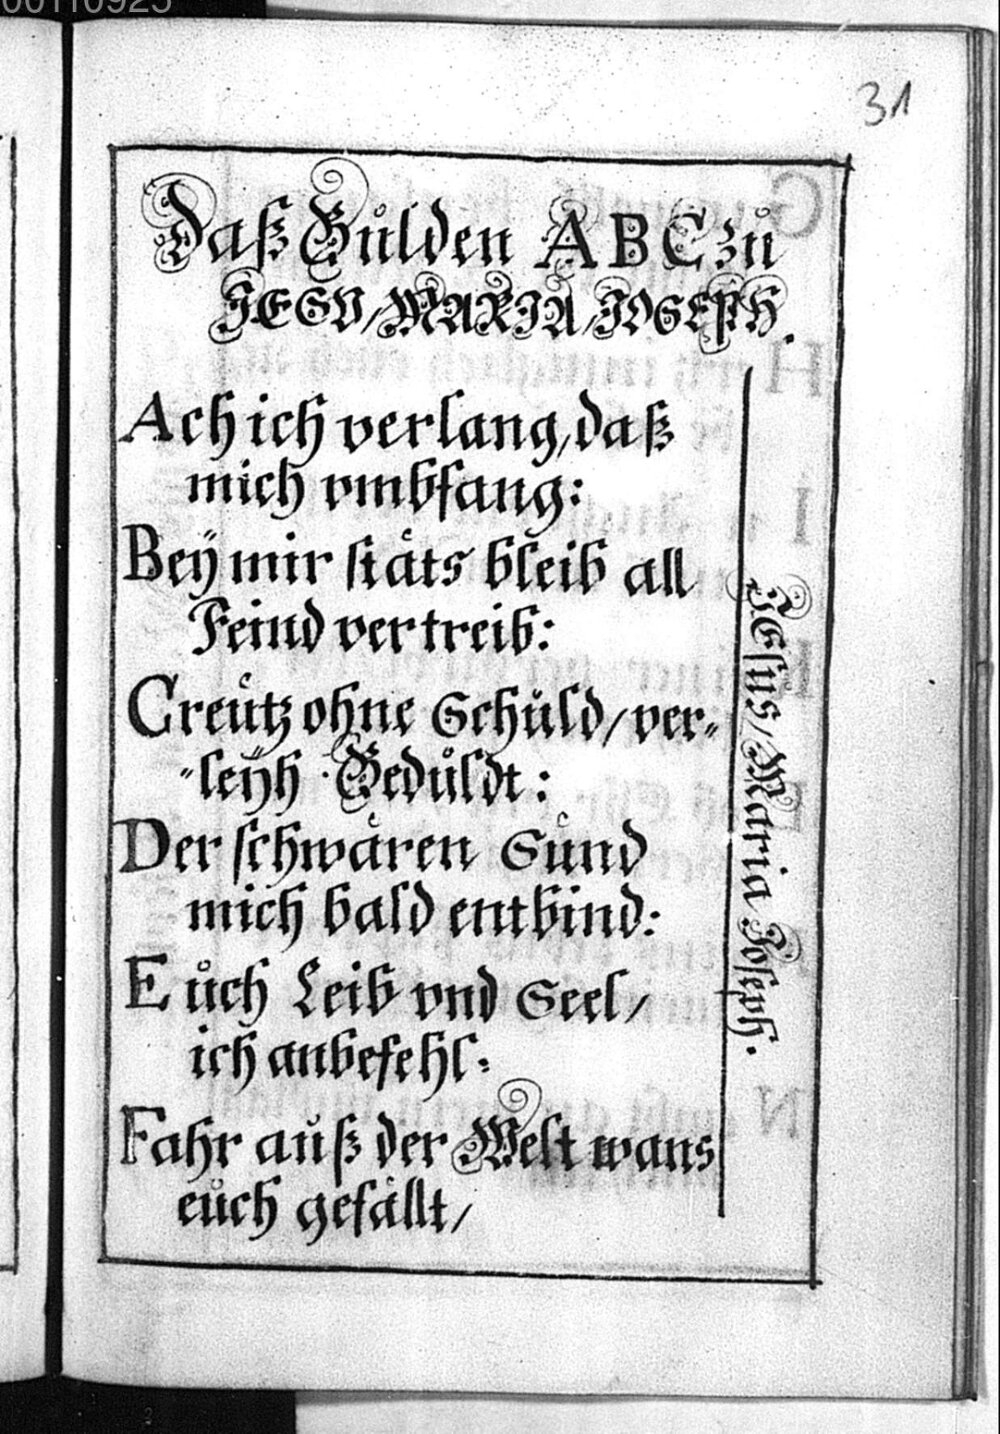 00110925
31
Daß Gůlden A B C zů
JESV/MARIA/JOSEPH.
Ach ich verlang, daß
mich vmbfang:
Beÿ mir stäts bleib all
Feind vertreib:
Creůtz ohne Schůld/ver-
-leÿh Gedůldt:
Der schwären Sünd
mich bald entbind:
Eůch Leib vnd Seel/
ich anbefehl:
Fahr aůß der Welt wans
eůch gefällt/
JEsus/Maria Joseph.